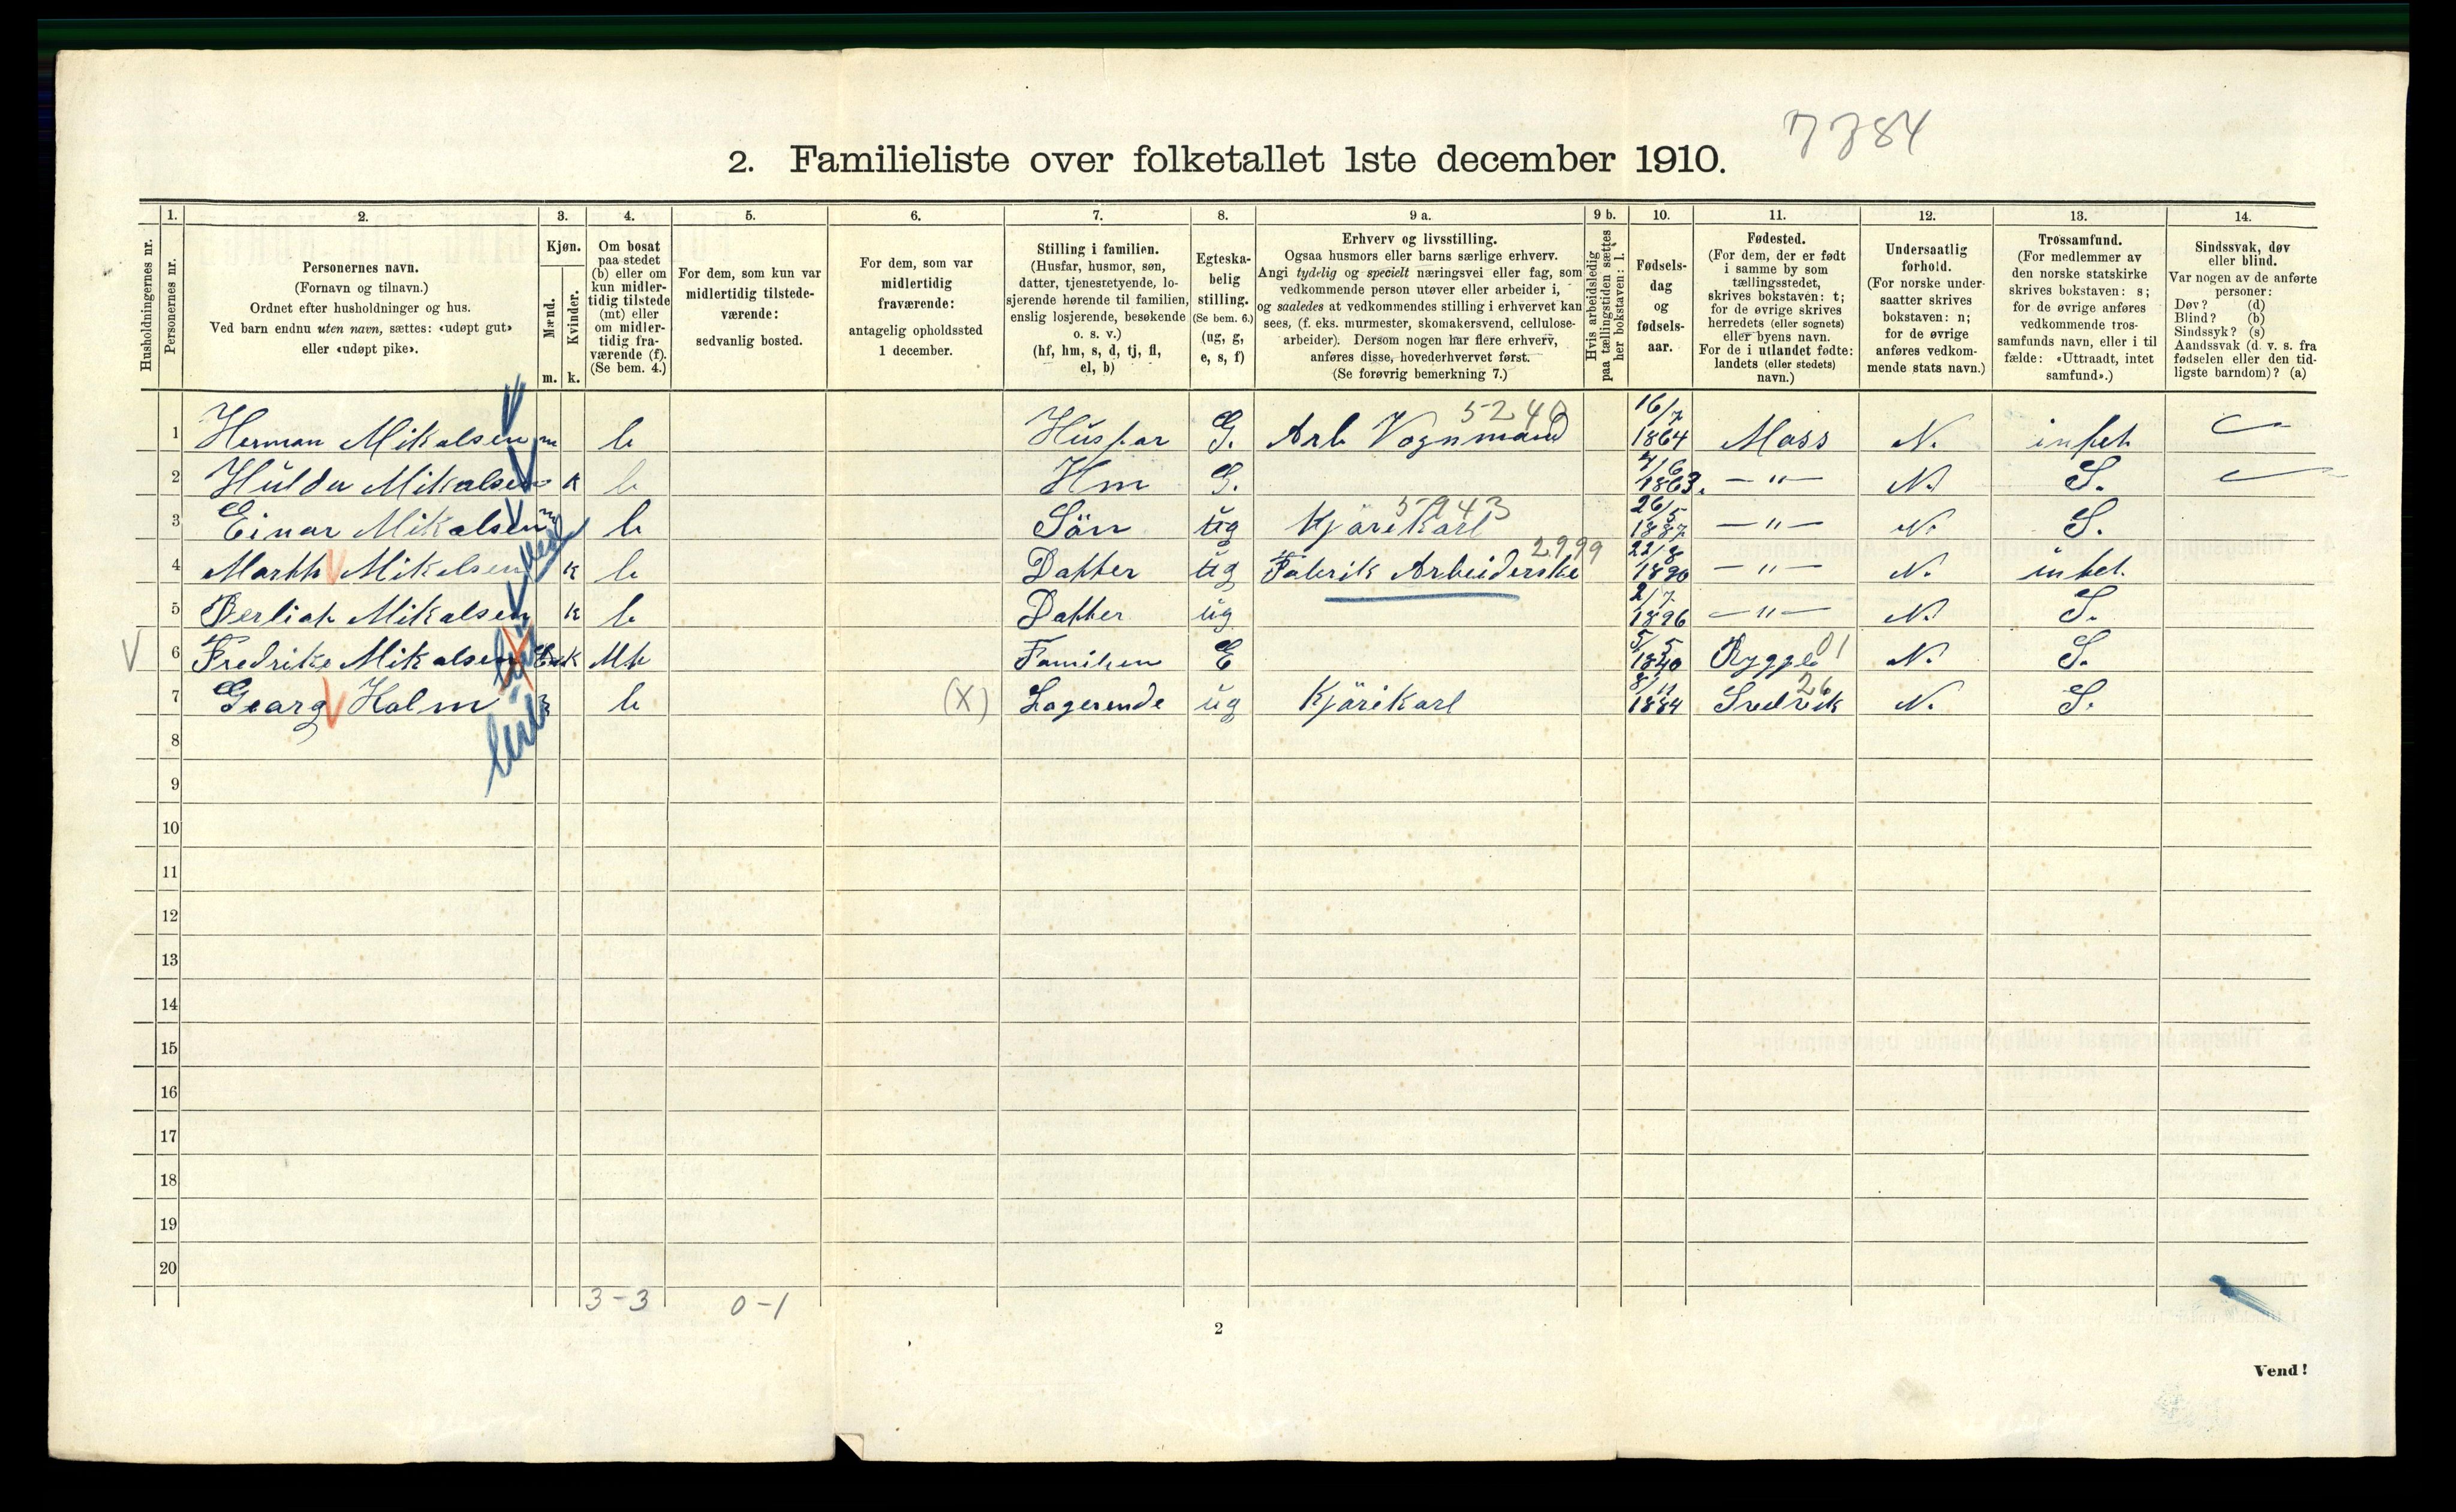 7784
2. Familieliste over folketallet 1ste december 1910.
Husholdningernes nr.
1.
Personernes nr.
2.
Personernes navn.
(Fornavn og tilnavn.)
Ordnet efter husholdninger og hus.
Ved barn endnu uten navn, sættes: «udøpt gut»
eller «udøpt pike».
3.
Kjøn.
Mænd.
Kvinder.
m. k.
4.
Om bosat
paa stedet
(b) eller om
kun midler-
tidig tilstede
(mt) eller
om midler-
tidig fra-
værende (f).
(Se bem. 4.)
5.
For dem, som kun var
midlertidig tilstede-
værende:
sedvanlig bosted.
6.
For dem, som var
midlertidig
fraværende:
antagelig opholdssted
1 december.
7.
Stilling i familien.
(Husfar, husmor, søn,
datter, tjenestetyende, lo-
sjerende hørende til familien,
enslig losjerende, besøkende
o. s. v.)
(hf, hm, s, d, tj, fl,
el, b)
8.
Egteska-
belig
stilling.
(Se bem. 6.)
(ug, g,
e, s, f)
9 a.
Erhverv og livsstilling.
Ogsaa husmors eller barns særlige erhverv.
Angi tydelig og specielt næringsvei eller fag, som
vedkommende person utøver eller arbeider i,
og saaledes at vedkommendes stilling i erhvervet kan
sees, (f. eks. murmester, skomakersvend, cellulose-
arbeider). Dersom nogen har flere erhverv,
anføres disse, hovederhvervet først.
(Se forøvrig bemerkning 7.)
9 b.
Hvis arbeidsledig
paa tællingstiden sættes
her bokstaven: l.
10.
Fødsels-
dag
og
fødsels-
aar.
11.
Fødested.
(For dem, der er født
i samme by som
tællingsstedet,
skrives bokstaven: t;
for de øvrige skrives
herredets (eller sognets)
eller byens navn.
For de i utlandet fødte:
landets (eller stedets)
navn.)
12.
Undersaatlig
forhold.
(For norske under-
saatter skrives
bokstaven: n;
for de øvrige
anføres vedkom-
mende stats navn.)
13.
Trossamfund.
(For medlemmer av
den norske statskirke
skrives bokstaven: s;
for de øvrige anføres
vedkommende tros-
samfunds navn, eller i til
fælde: «Uttraadt, intet
samfund».)
14.
Sindssvak, døv
eller blind.
Var nogen av de anførte
personer:
Døv? (d)
Blind? (b)
Sindssyk? (s)
Aandssvak (d. v. s. fra
fødselen eller den tid-
ligste barndom)? (a)
1 Herman Mikalsen m b Husfar G. Arb Vognmand 5240 16/7 1864 Moss N. intet
2 Hulda Mikalsen k b Hm G. 7/6 1863. — " — N. S.
3 Einar Mikalsen m b Sön ug Kjörekarl 5943 26/5 1887 — " — N. S.
4 Marth Mikalsen k b Datter ug Fabrik Arbeiderske 2999 22/8 1890 — " — N. intet
5 Berliot Mikalsen k b Datter ug 2/7 1896 — " — N. S.
6 Fredrike Mikalsen k Mt Familien E 5/5 1840 Rygge 01 N. S.
7 Georg Holm m b (X) Logerende ug Kjörekarl 8/11 1884 Fredrik 26 N. S.
8
9
10
11
12
13
14
15
16
17
18
19
20
3-3
0-1
2
Vend!